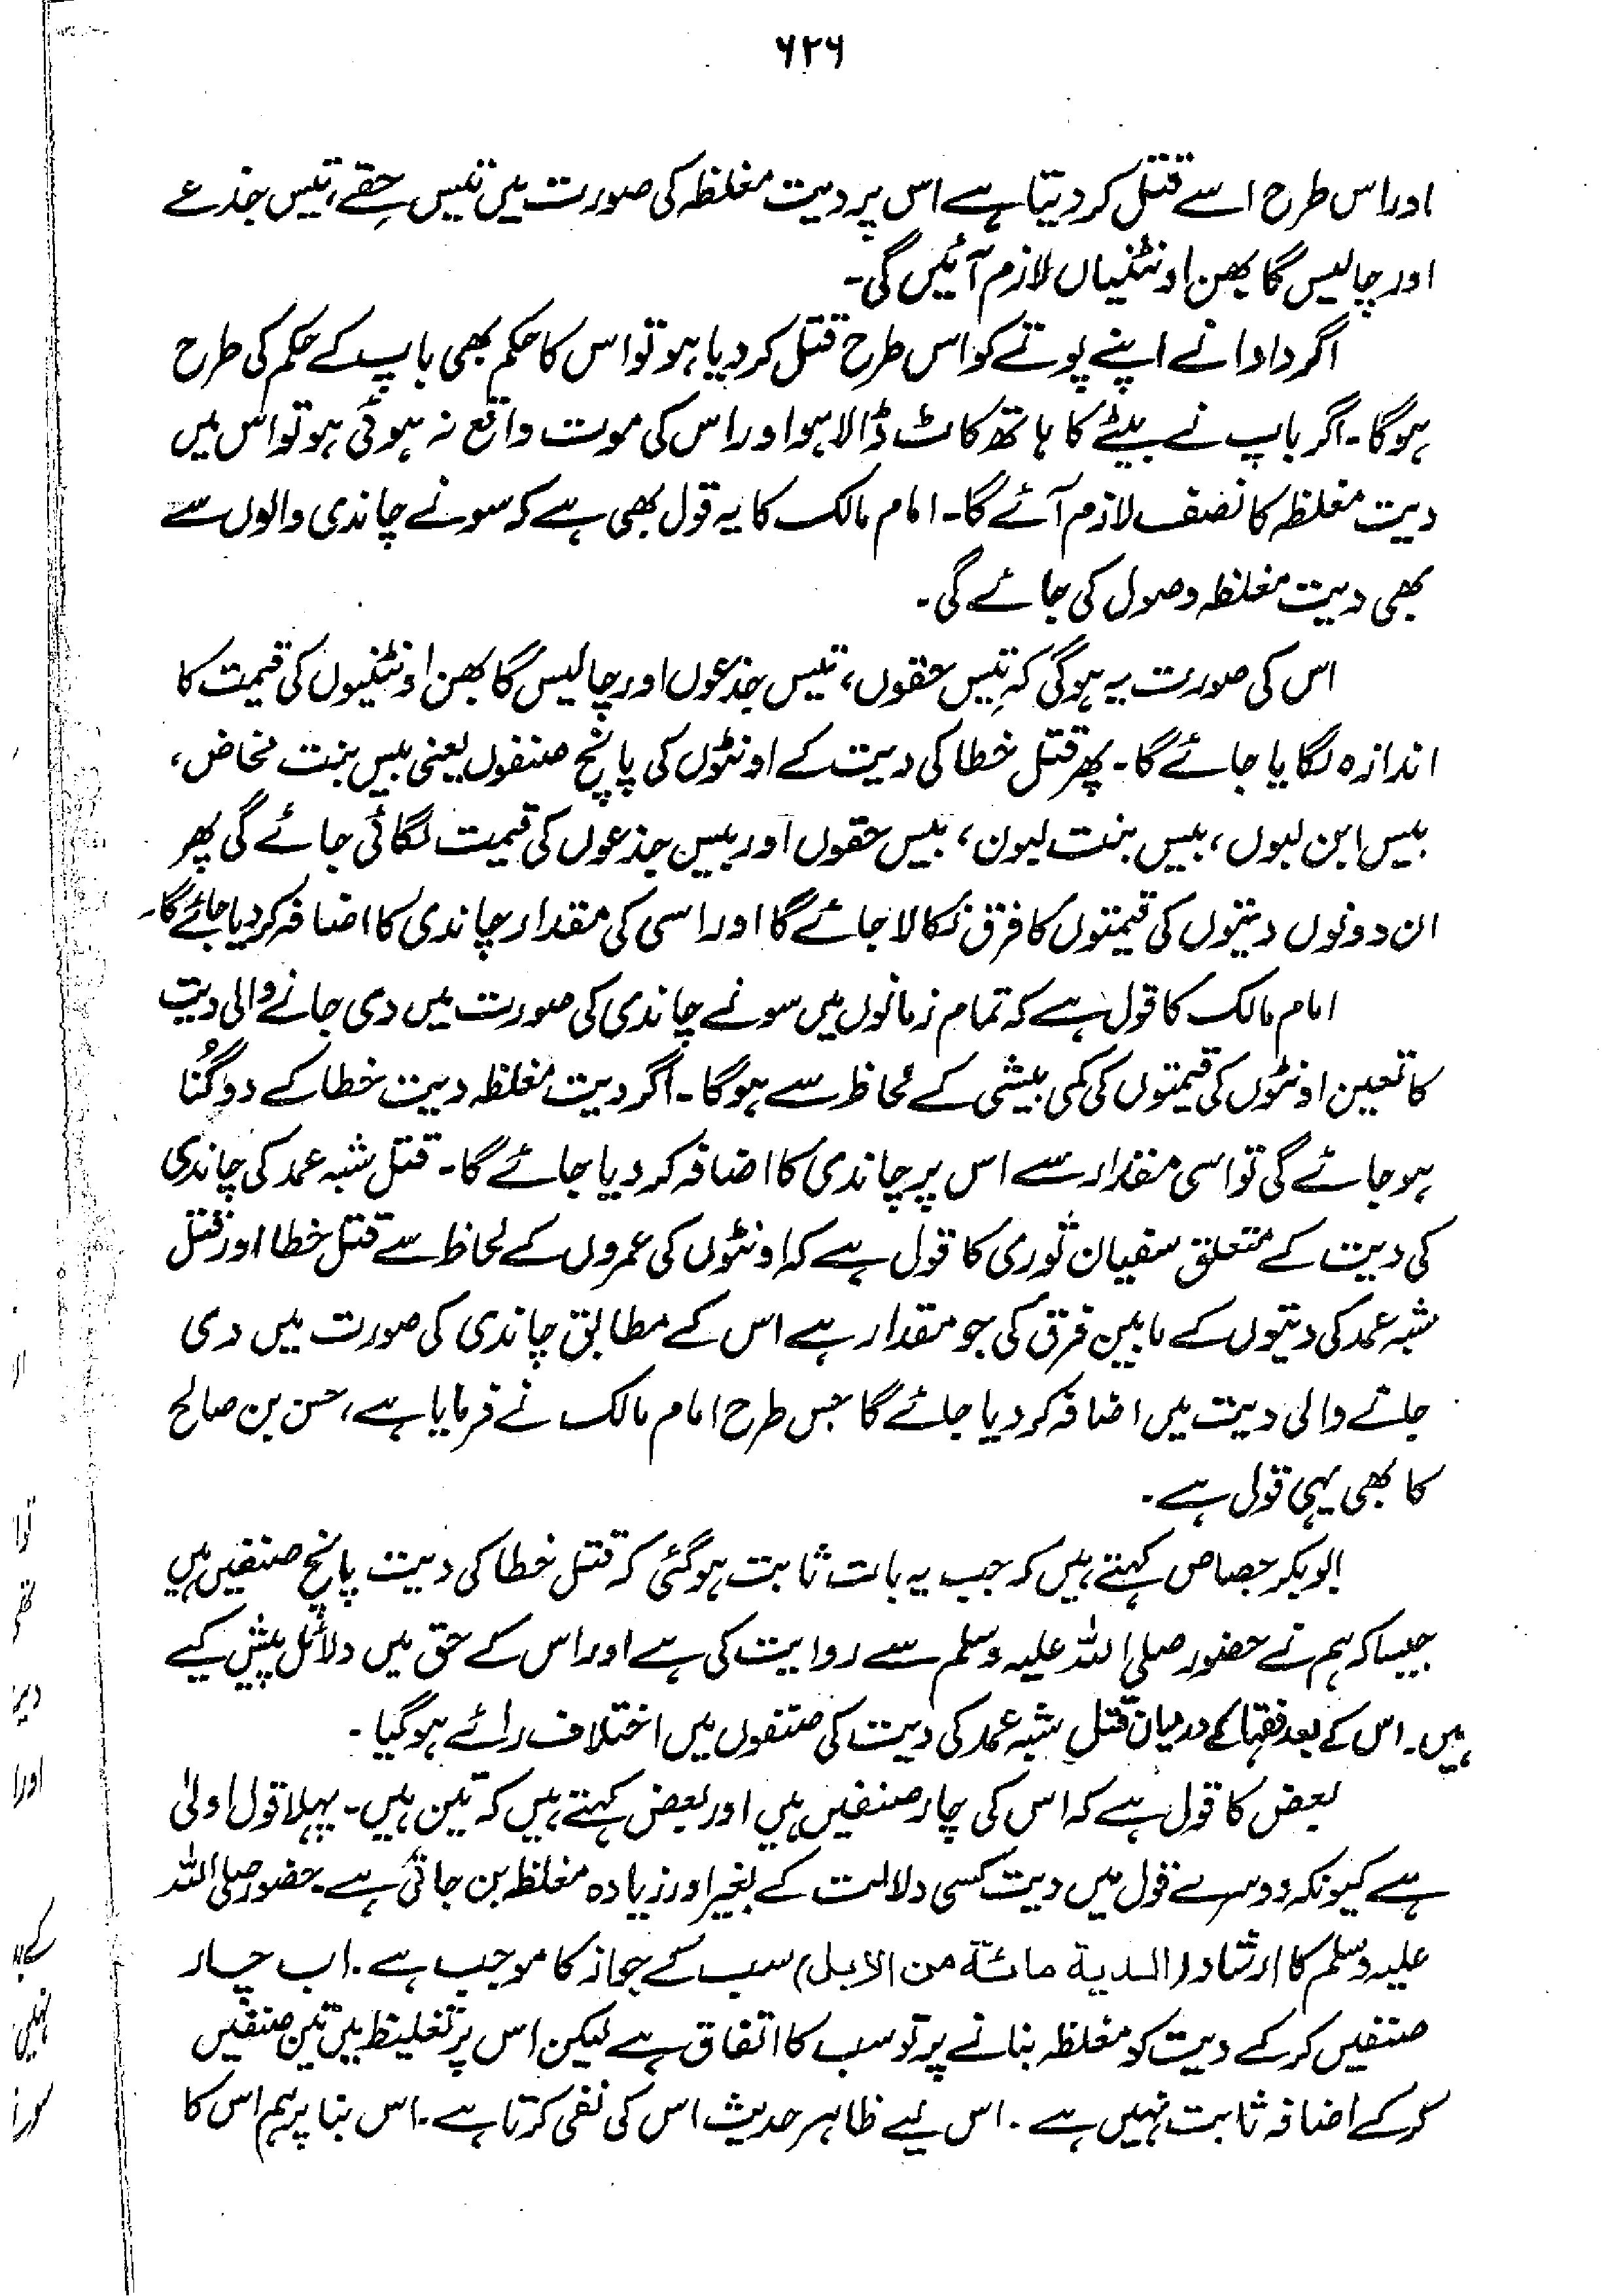 ۶۲۶
اور اس طرح اسے قتل کر دیتا ہے اس پر دیت مغلظہ کی صورت میں تیس حِقے، تیس جذعے
اور چالیس گابھن اونٹنیاں لازم آئیں گی۔
اگر دادا نے اپنے پوتے کو اس طرح قتل کر دیا ہو تو اس کا حکم بھی باپ کے حکم کی طرح
ہوگا۔ اگر باپ نے بیٹے کا ہاتھ کاٹ ڈالا ہو اور اس کی موت واقع نہ ہوئی ہو تو اس میں
دیت مغلظہ کا نصف لازم آئے گا۔ امام مالک کا یہ قول بھی ہے کہ سونے چاندی والوں سے
بھی دیت مغلظہ وصول کی جائے گی۔
اس کی صورت یہ ہوگی کہ تیس حقوں، تیس جذعوں اور چالیس گابھن اونٹنیوں کی قیمت کا
اندازہ لگایا جائے گا۔ پھر قتل خطا کی دیت کے اونٹوں کی پانچ صنفوں یعنی بیس بنت مخاض،
بیس ابن لبوں، بیس بنت لبون، بیس حقوں اور بیس جذعوں کی قیمت لگائی جائے گی پھر
ان دونوں دیتوں کی قیمتوں کا فرق نکالا جائے گا اور اسی کی مقدار چاندی کا اضافہ کر دیا جائے گا۔
امام مالک کا قول ہے کہ تمام زمانوں میں سونے چاندی کی صورت میں دی جانے والی دیت
کا تعین اونٹوں کی قیمتوں کی کمی بیشی کے لحاظ سے ہوگا۔ اگر دیت مغلظہ دیت خطا کے دوگُنا
ہو جائے گی تو اسی مقدار سے اس پر چاندی کا اضافہ کر دیا جائے گا۔ قتل شبہ عمد کی چاندی
کی دیت کے متعلق سفیان ثوری کا قول ہے کہ اونٹوں کی عمروں کے لحاظ سے قتل خطا اور قتل
شبہ عمد کی دیتوں کے مابین فرق کی جو مقدار ہے اس کے مطابق چاندی کی صورت میں دی
جانے والی دیت میں اضافہ کر دیا جائے گا جس طرح امام مالک نے فرمایا ہے، حسن بن صالح
کا بھی یہی قول ہے۔
ابوبکر جصاص کہتے ہیں کہ جب یہ بات ثابت ہوگئی کہ قتل خطا کی دیت پانچ صنفیں ہیں
جیسا کہ ہم نے حضور صلی اللہ علیہ وسلم سے روایت کی ہے اور اس کے حق میں دلائل پیش کیے
ہیں۔ اس کے بعد فقہا کے درمیان قتلِ شبہ عمد کی دیت کی صنفوں میں اختلاف رائے ہوگیا۔
بعض کا قول ہے کہ اس کی چار صنفیں ہیں اور بعض کہتے ہیں کہ تین ہیں۔ پہلا قول اولیٰ
ہے کیونکہ دوسرے قول میں دیت کسی دلالت کے بغیر اور زیادہ مغلظ بن جاتی ہے۔ حضور صلی اللہ
علیہ وسلم کا ارشاد (الدیة مائة من الابل) سب کے جواز کا موجب ہے۔ اب چار
صنفیں کرکے دیت کو مغلظہ بنانے پر تو سب کا اتفاق ہے لیکن اس پر تغلیظ میں تین صنفیں
کرکے اضافہ ثابت نہیں ہے۔ اس لیے ظاہر حدیث اس کی نفی کرتا ہے۔ اس بنا پر ہم اس کا